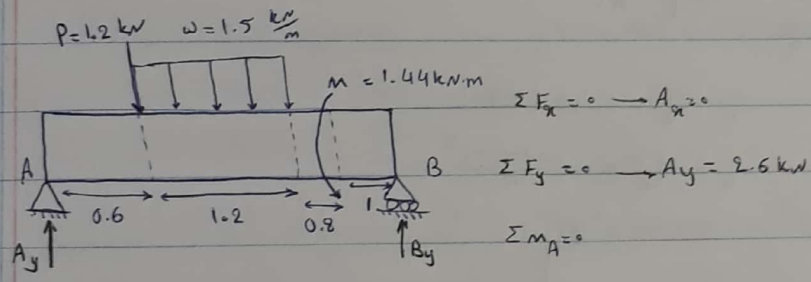 P=1.2 kN
w=1.5 kN/m
M = 1.44 kN.m
Σ Fx = 0 → Ax = 0
A
B
Σ Fy = 0 → Ay = 2.6 kN
0.6
1.2
0.8
1
Ay
By
Σ MA = 0